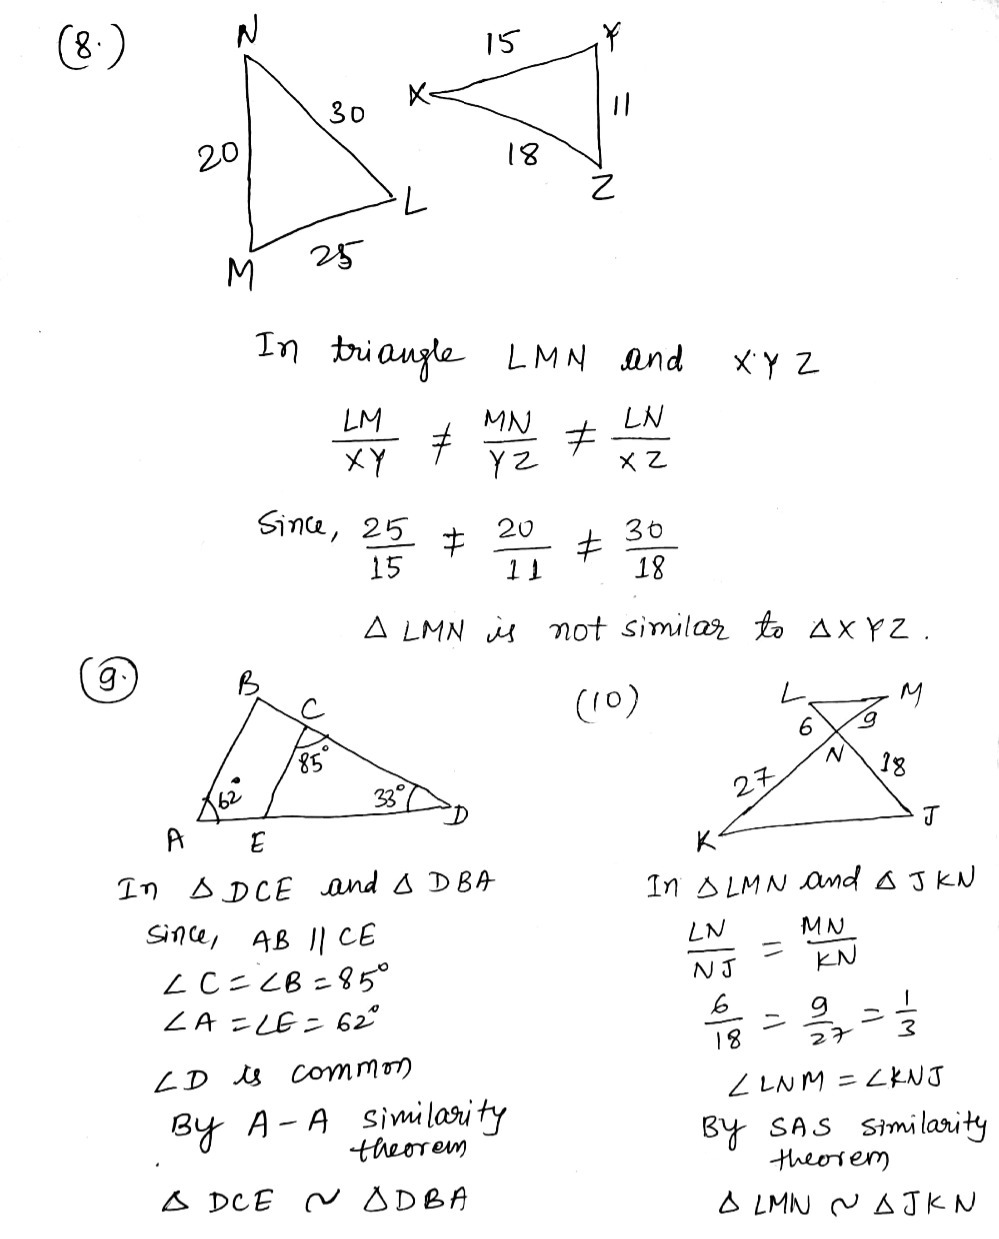 (8.)
N
30
20
L
25
M
15
Y
X
11
18
Z
In triangle LMN and XYZ
LM/XY ≠ MN/YZ ≠ LN/XZ
Since, 25/15 ≠ 20/11 ≠ 30/18
Δ LMN is not similar to ΔXYZ.
(9.)
B
C
85°
62°
33°
D
A
E
In Δ DCE and Δ DBA
Since, AB || CE
∠C = ∠B = 85°
∠A = ∠E = 62°
∠D is common
By A-A similarity
theorem
Δ DCE ~ ΔDBA
(10)
L
M
6
9
N
27
18
J
K
In ΔLMN and Δ JKN
LN/NJ = MN/KN
6/18 = 9/27 = 1/3
∠LNM = ∠KNJ
By SAS similarity
theorem
Δ LMN ~ ΔJKN